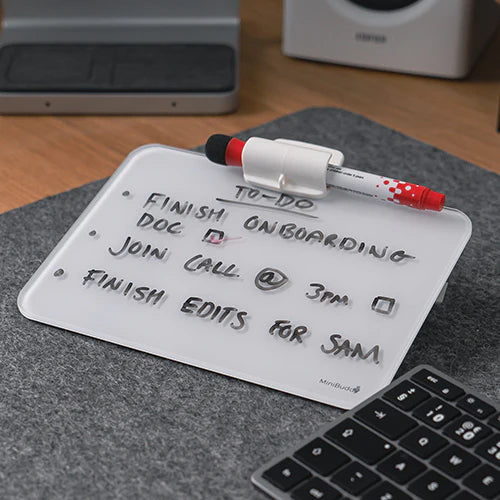 EDIFIER
TO-DO
• FINISH ONBOARDING
DOC ☑
• JOIN CALL @ 3PM ☐
• FINISH EDITS FOR SAM.
MiniBuddy
Q
W
A
S